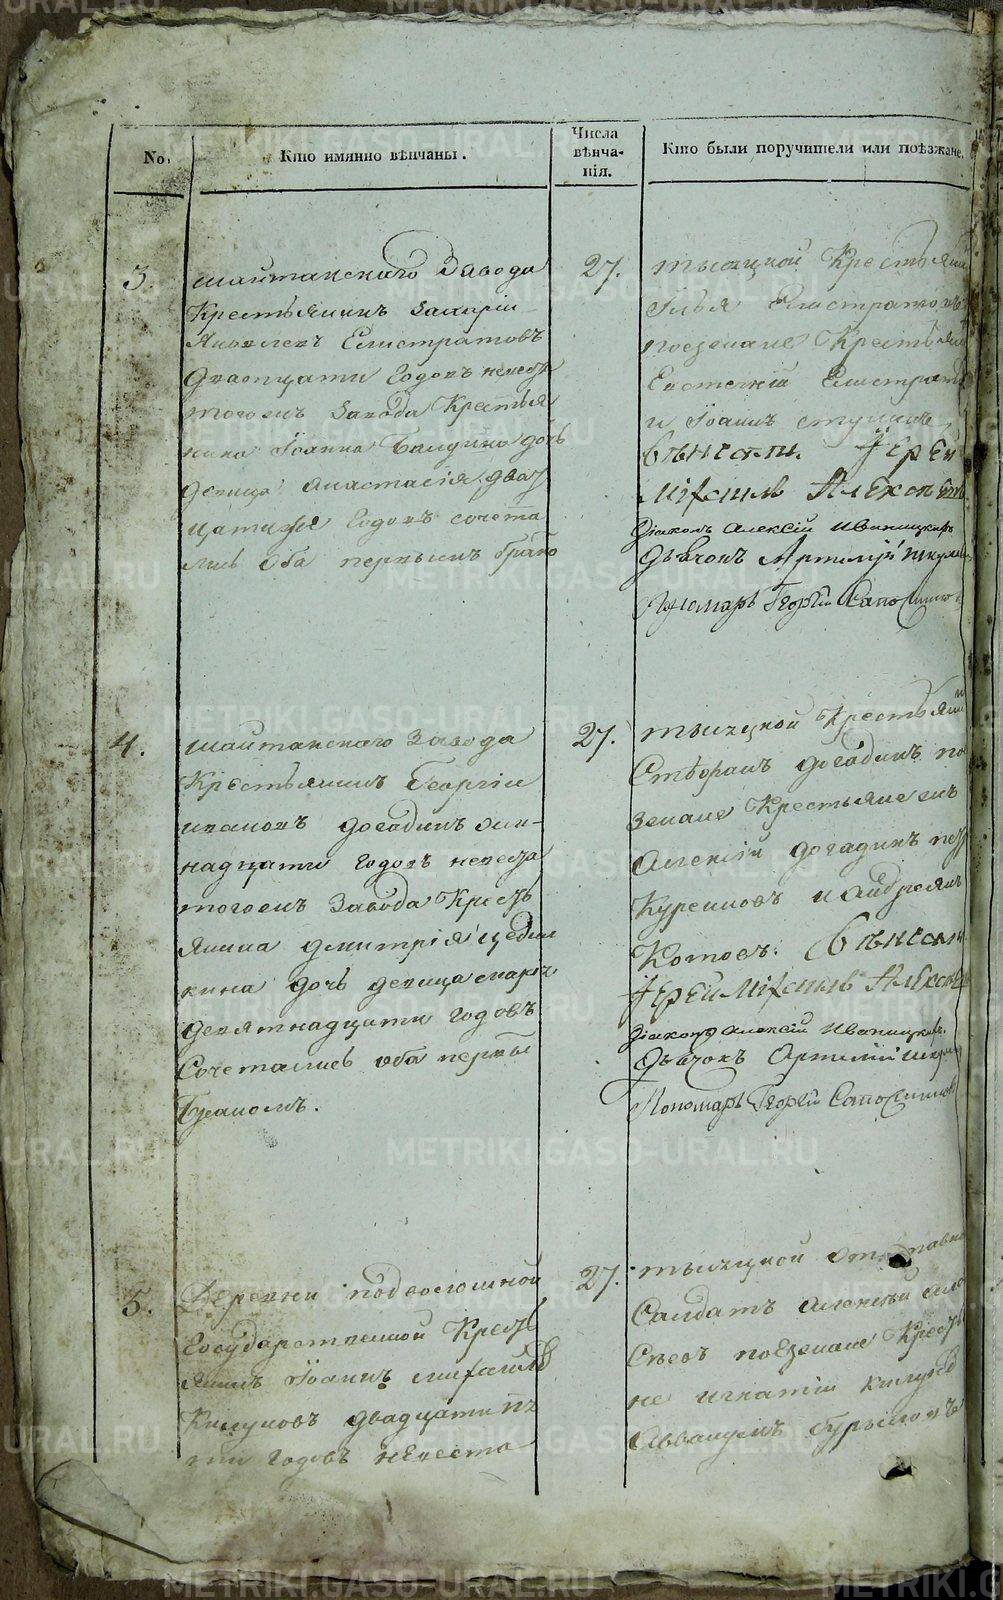 No.
Кто имянно вѣнчаны.
Числа
вѣнча-
нія.
Кто были поручители или поѣзжане.
3.
шайтанскаго Завода
Крестьянинъ Захарій
Яковлевъ Елистратовъ
Двадцати годовъ невеста
тогоежъ Завода Крестья
нина Іоанна Балдина дочь
девица Анастасія двад
цати же годовъ сочета
лись Оба первымъ Брако
27.
тысяцкой Крестьяни
Илья Елистратовъ
поезжане Крестьяне
Евстегній Елистратов
и Іоаннъ
вѣнчалъ Іерей
Міхаилъ Алексѣев
Діаконъ Алексій Иваницкій
Дьячокъ Артемій
Пономарь Георгій Сапожников
4.
шайтанскаго Завода
Крестьянинъ Георгій
ивановъ догадинъ
надцати годовъ невеста
тогоежъ Завода Кресть
янина димитрія
кина дочь девица марѳ
девятнадцати годовъ
Сочетались оба первы
Бракомъ.
27.
тысяцкой Крестьянин
Стефанъ догадинъ по
зжане Крестьяне
Алексій догадинъ
Куренновъ и андреянъ
Котовъ. вѣнчалъ
Іерей Міхаилъ Алексѣев
Діаконъ Алексій Иваницкій.
Дьячокъ Артемій
Пономарь Георгій Сапожников
5.
Деревни подволошной
Государственной Кресть
янинъ Іоаннъ михайлов
Килуновъ двадцати пя
ти годовъ невеста
27.
тысяцкой отставно
Салдатъ Алексѣй
поезжане Крестья
не игнатій
Аввакумъ бурылов